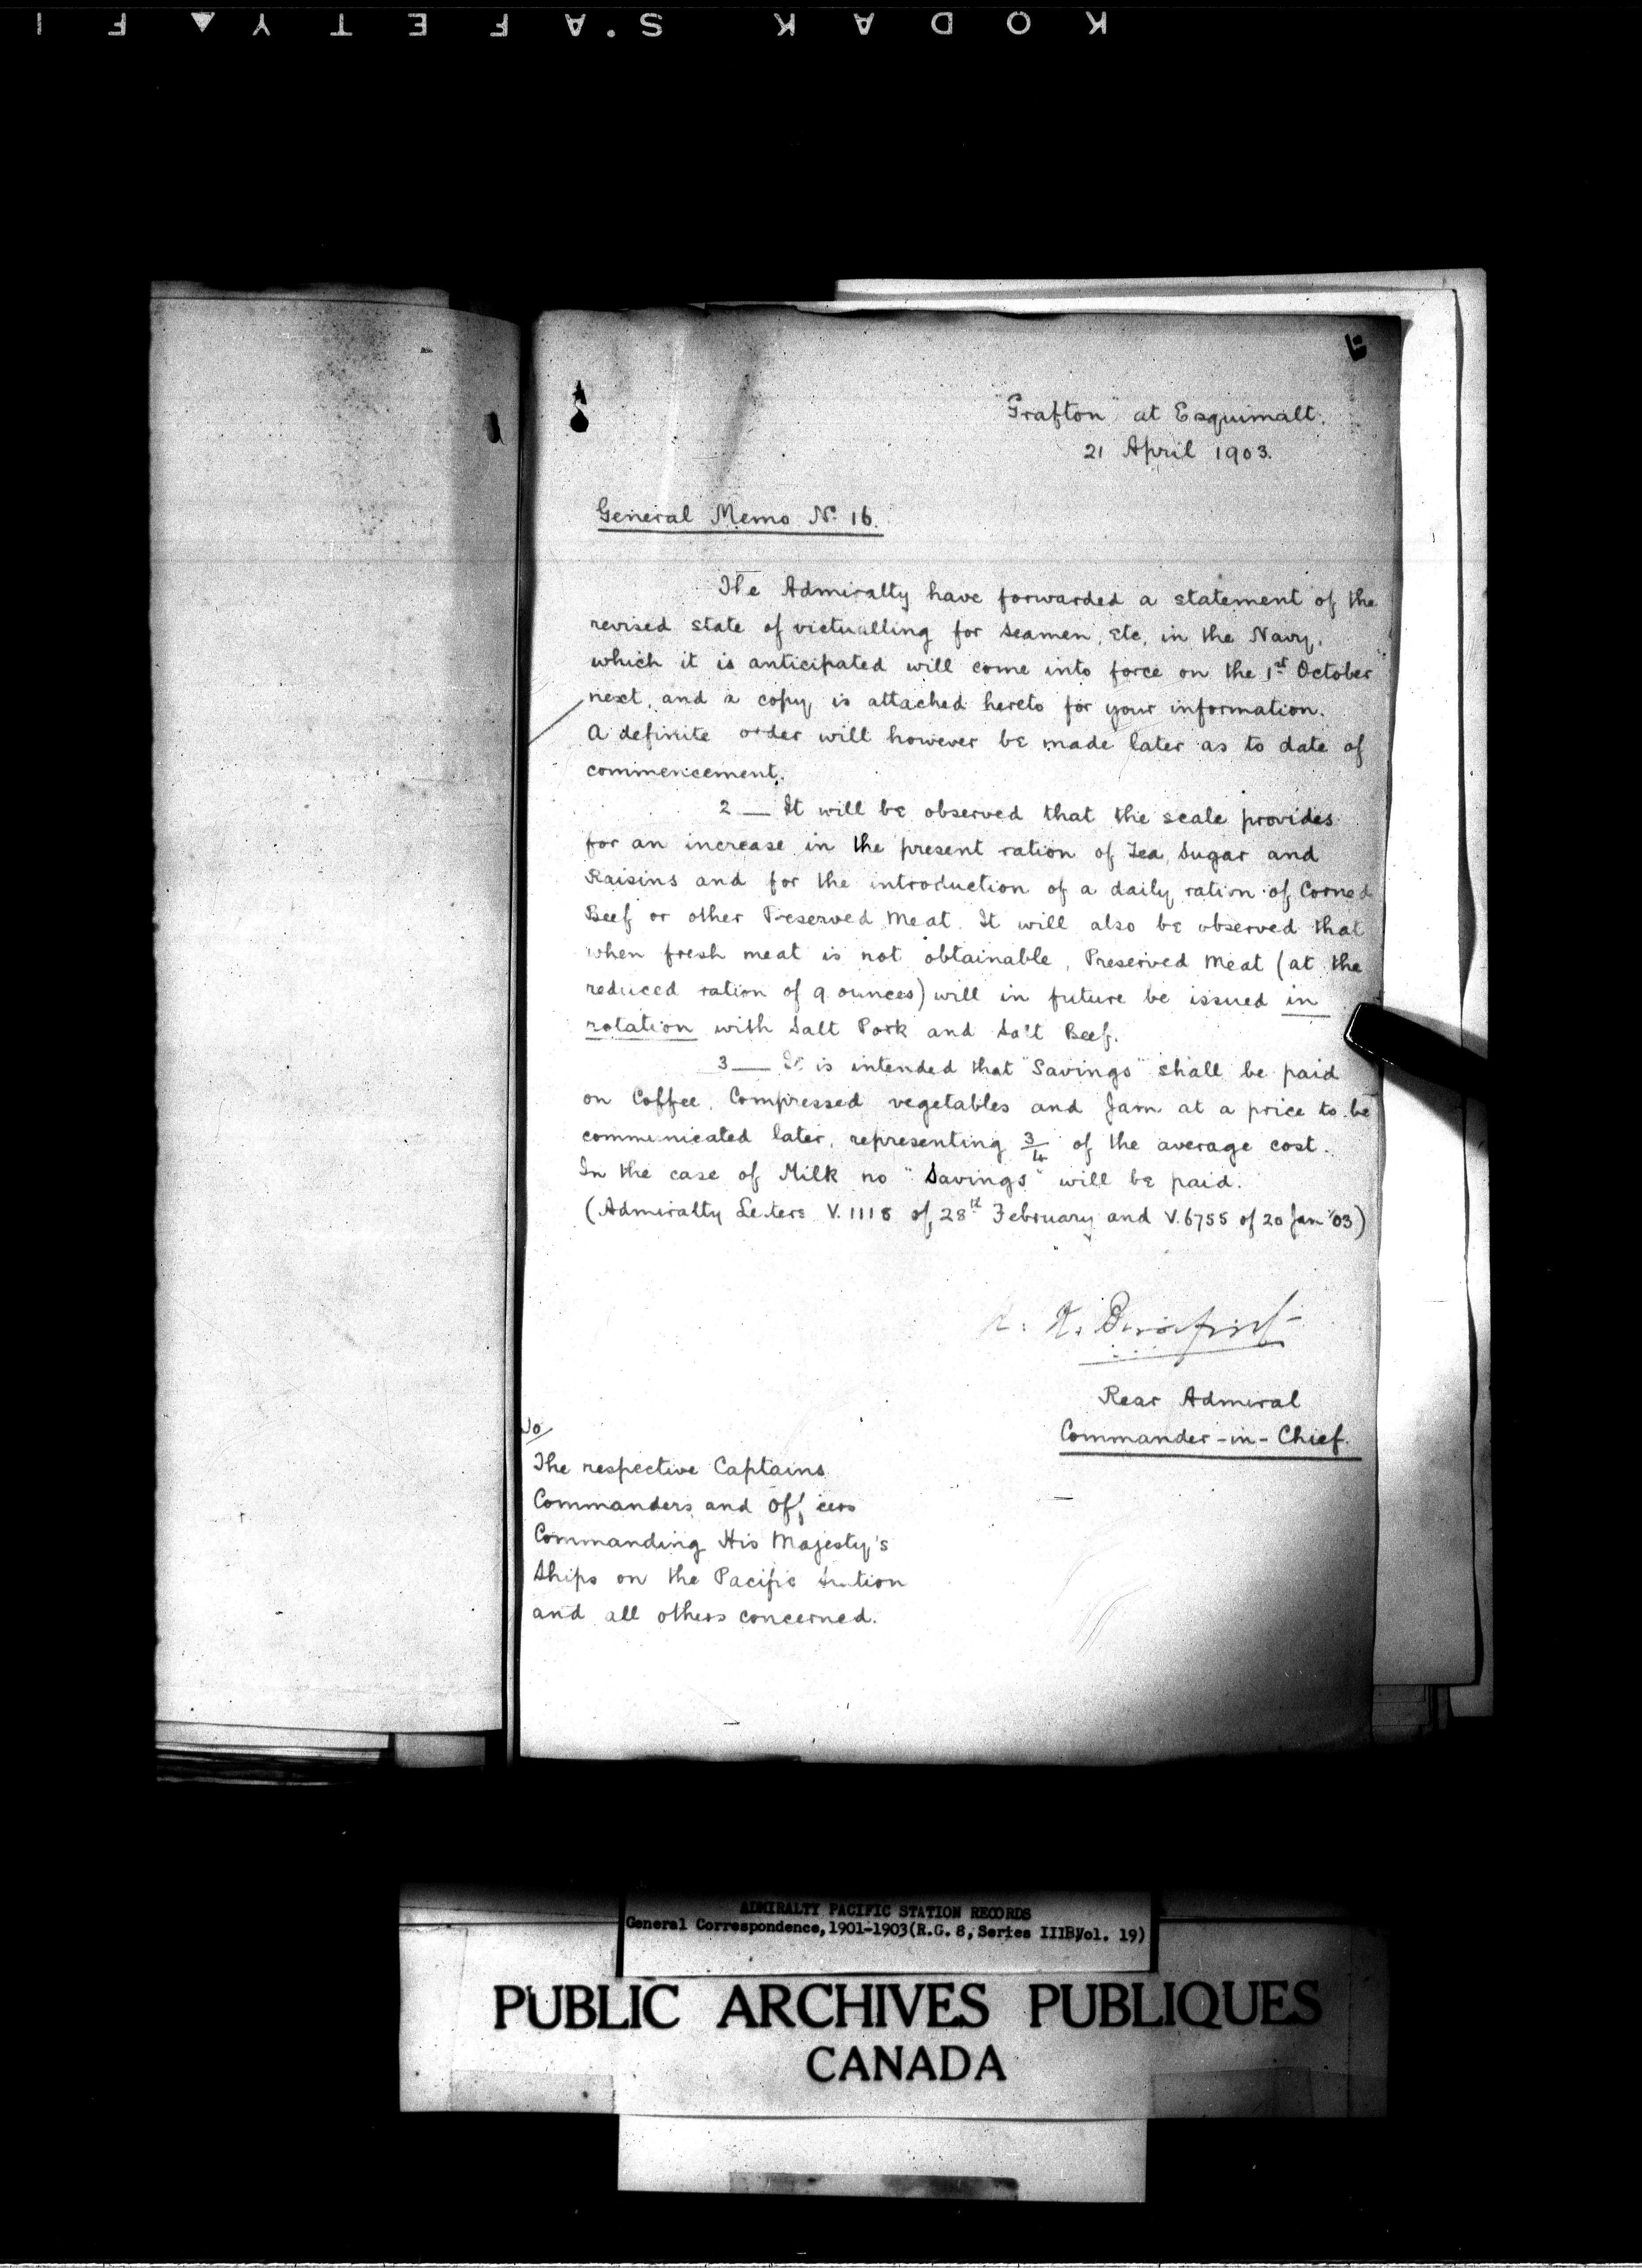 KODAK S'AFETY▲FI
"Grafton" at Esquimalt.
21 April 1903.
General Memo No. 16.
The Admiralty have forwarded a statement of the
revised state of victualling for Seamen, etc, in the Navy,
which it is anticipated will come into force on the 1st October
next, and a copy is attached hereto for your information.
A definite order will however be made later as to date of
commencement.
2 — It will be observed that the scale provides
for an increase in the present ration of Tea, Sugar and
Raisins and for the introduction of a daily ration of Corned
Beef or other Preserved Meat. It will also be observed that
when fresh meat is not obtainable, Preserved Meat (at the
reduced ration of 9 ounces) will in future be issued in
rotation with Salt Pork and Salt Beef.
3 — It is intended that "Savings" shall be paid
on Coffee, Compressed vegetables and Jam at a price to be
communicated later, representing 3/4 of the average cost.
In the case of Milk no "Savings" will be paid.
(Admiralty Letters V.1118 of 28th February and V.6755 of 20 Jan '03)
Rear Admiral
Commander-in-Chief.
To/
The respective Captains
Commanders and Officers
Commanding His Majesty's
Ships on the Pacific Station
and all others concerned.
ADMIRALTY PACIFIC STATION RECORDS
General Correspondence, 1901-1903(R.G. 8, Series IIIB, Vol. 19)
PUBLIC ARCHIVES PUBLIQUES
CANADA